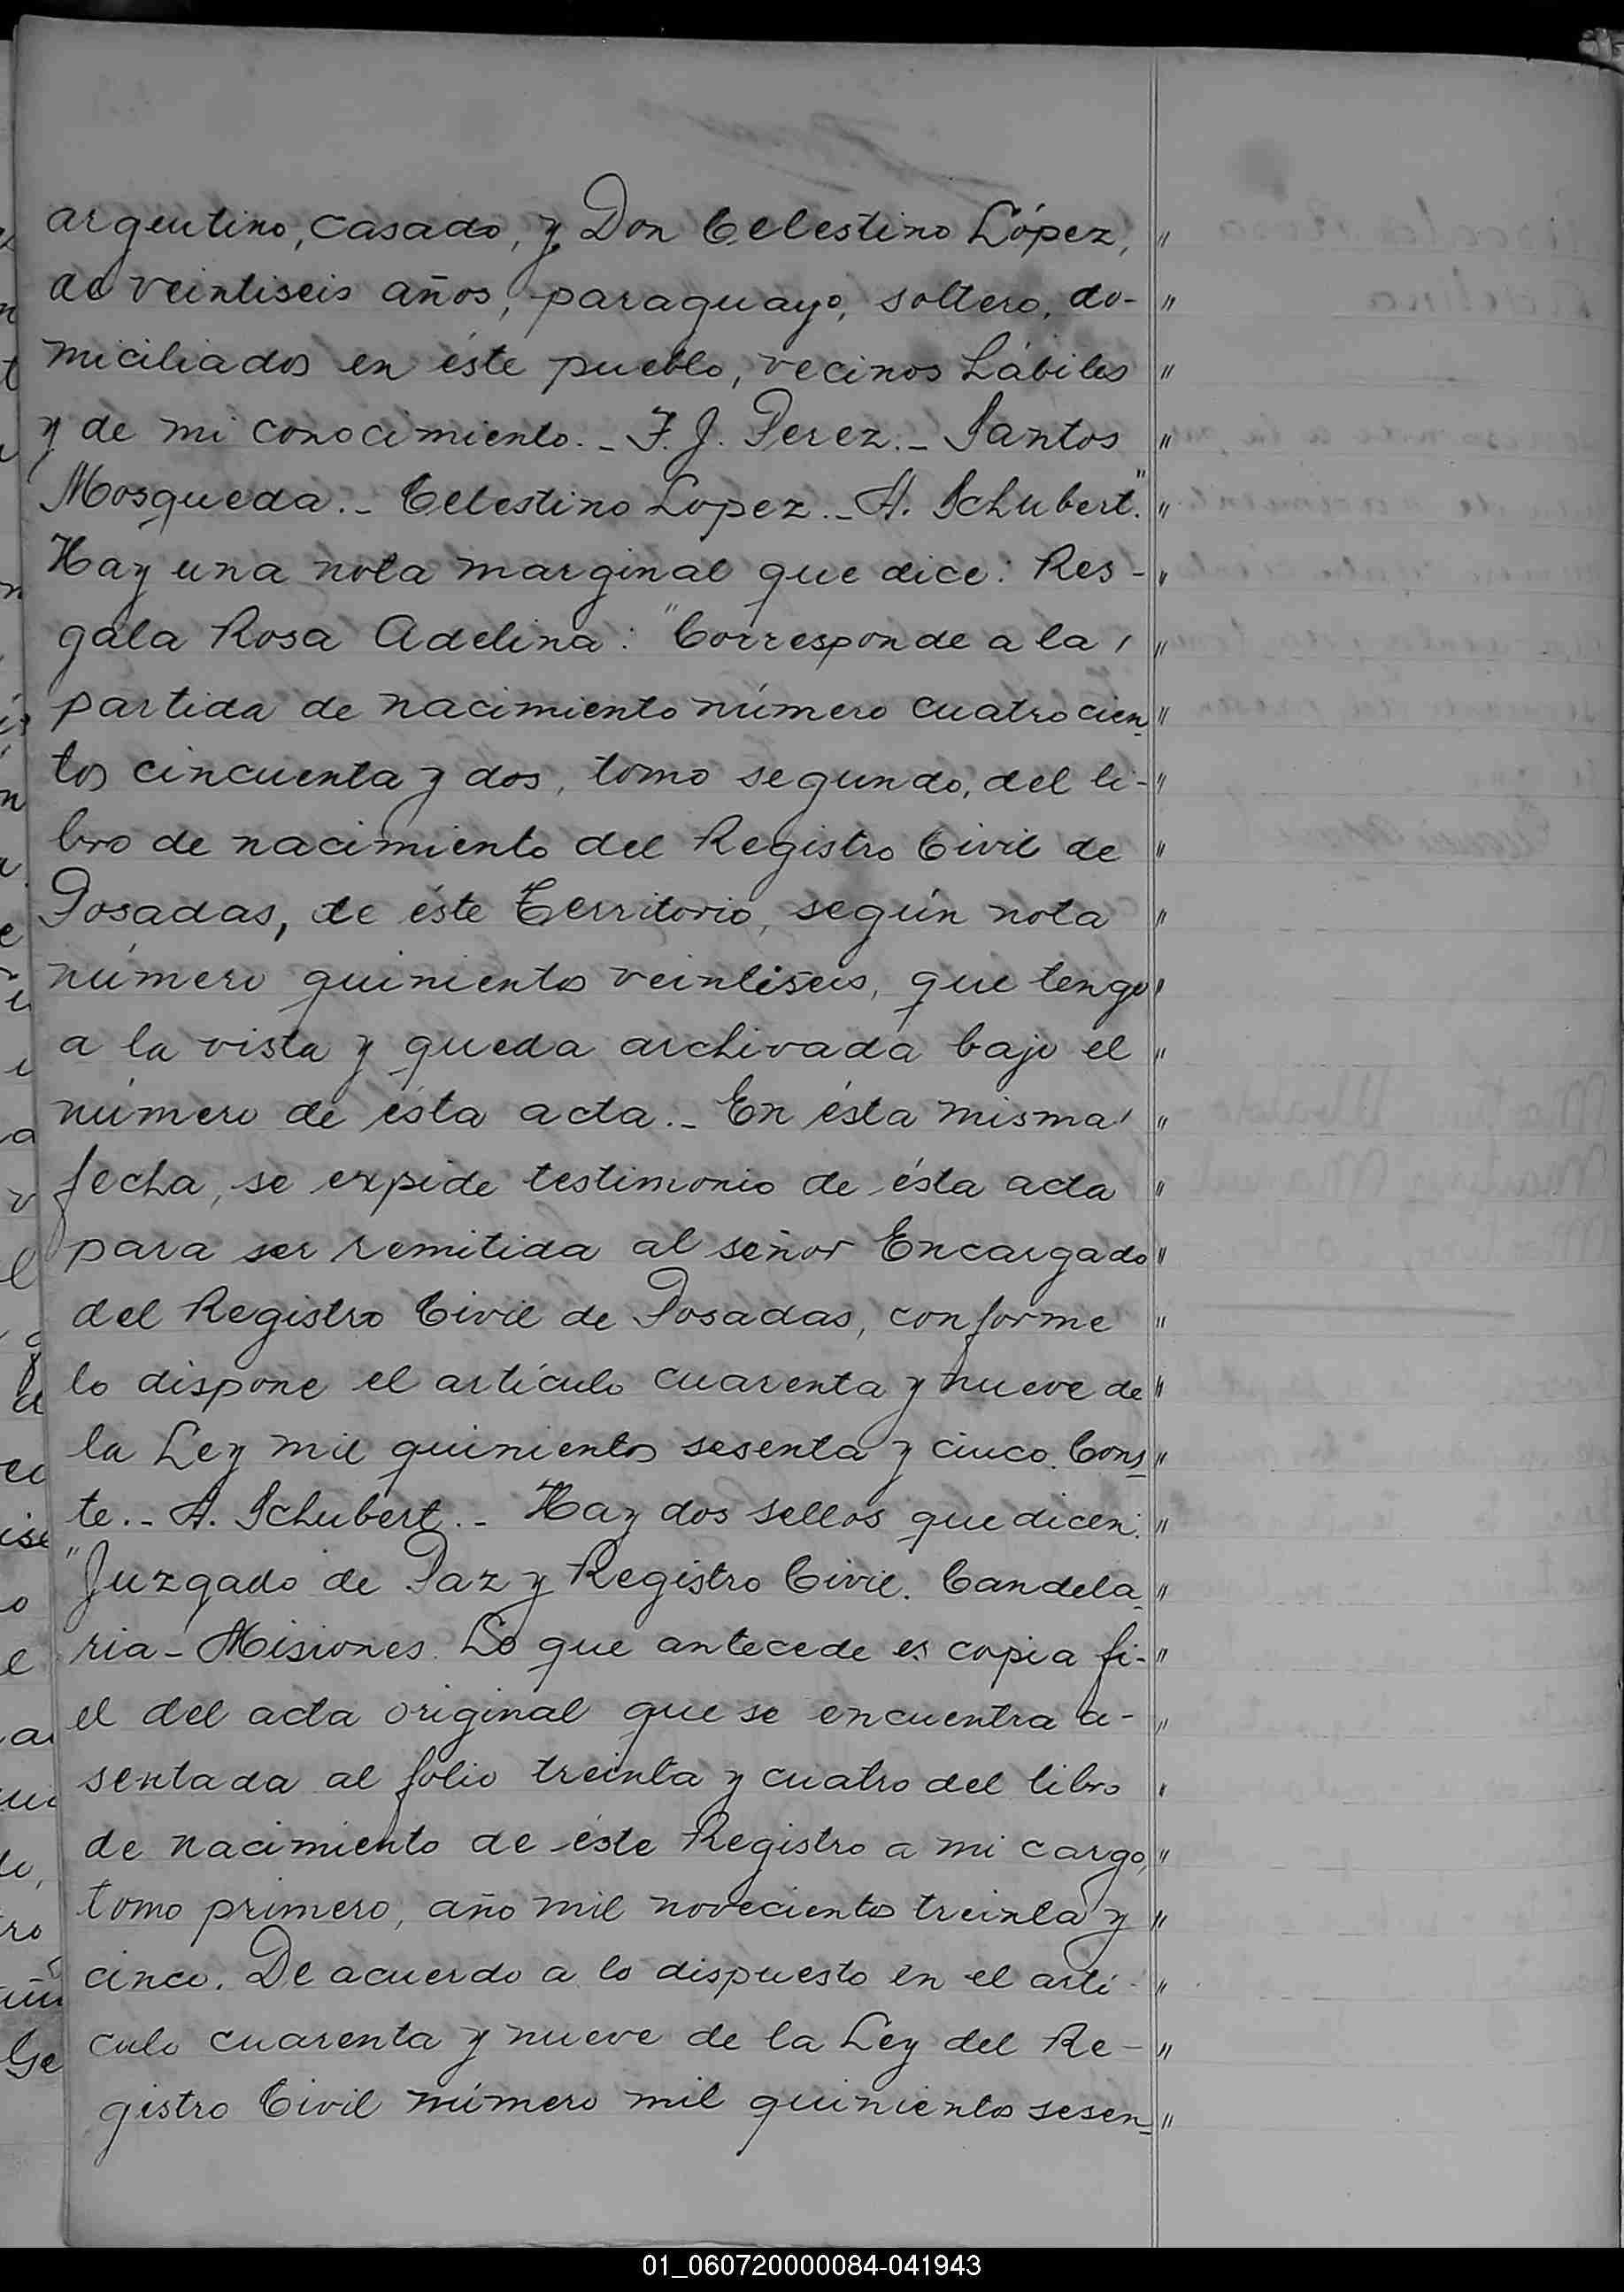 argentino, casado, y Don Celestino López, "
de veintiseis años, paraguayo, soltero, do- "
miciliados en éste pueblo, vecinos hábiles "
y de mi conocimiento.- F. J. Perez.- Santos "
Mosqueda.- Celestino Lopez.- A. Schubert". "
Hay una nota marginal que dice: Res- "
gala Rosa Adelina: "Corresponde a la "
partida de nacimiento número cuatrocien "
tos cincuenta y dos, tomo segundo, del li- "
bro de nacimiento del Registro Civil de "
Posadas, de éste Territorio, según nota "
número quinientos veintiseis, que tengo "
a la vista y queda archivada bajo el "
número de ésta acta.- En ésta misma "
fecha, se expide testimonio de ésta acta "
para ser remitida al señor Encargado "
del Registro Civil de Posadas, conforme "
lo dispone el artículo cuarenta y nueve de "
la Ley mil quinientos sesenta y cinco. Cons "
te.- A. Schubert.- Hay dos sellos que dicen: "
"Juzgado de Paz y Registro Civil. Candela "
ria - Misiones. Lo que antecede es copia fi- "
el del acta original que se encuentra a- "
sentada al folio treinta y cuatro del libro "
de nacimiento de éste Registro a mi cargo, "
tomo primero, año mil novecientos treinta y "
cinco. De acuerdo a lo dispuesto en el artí- "
culo cuarenta y nueve de la Ley del Re- "
gistro Civil número mil quinientos sesen "
01_060720000084-041943